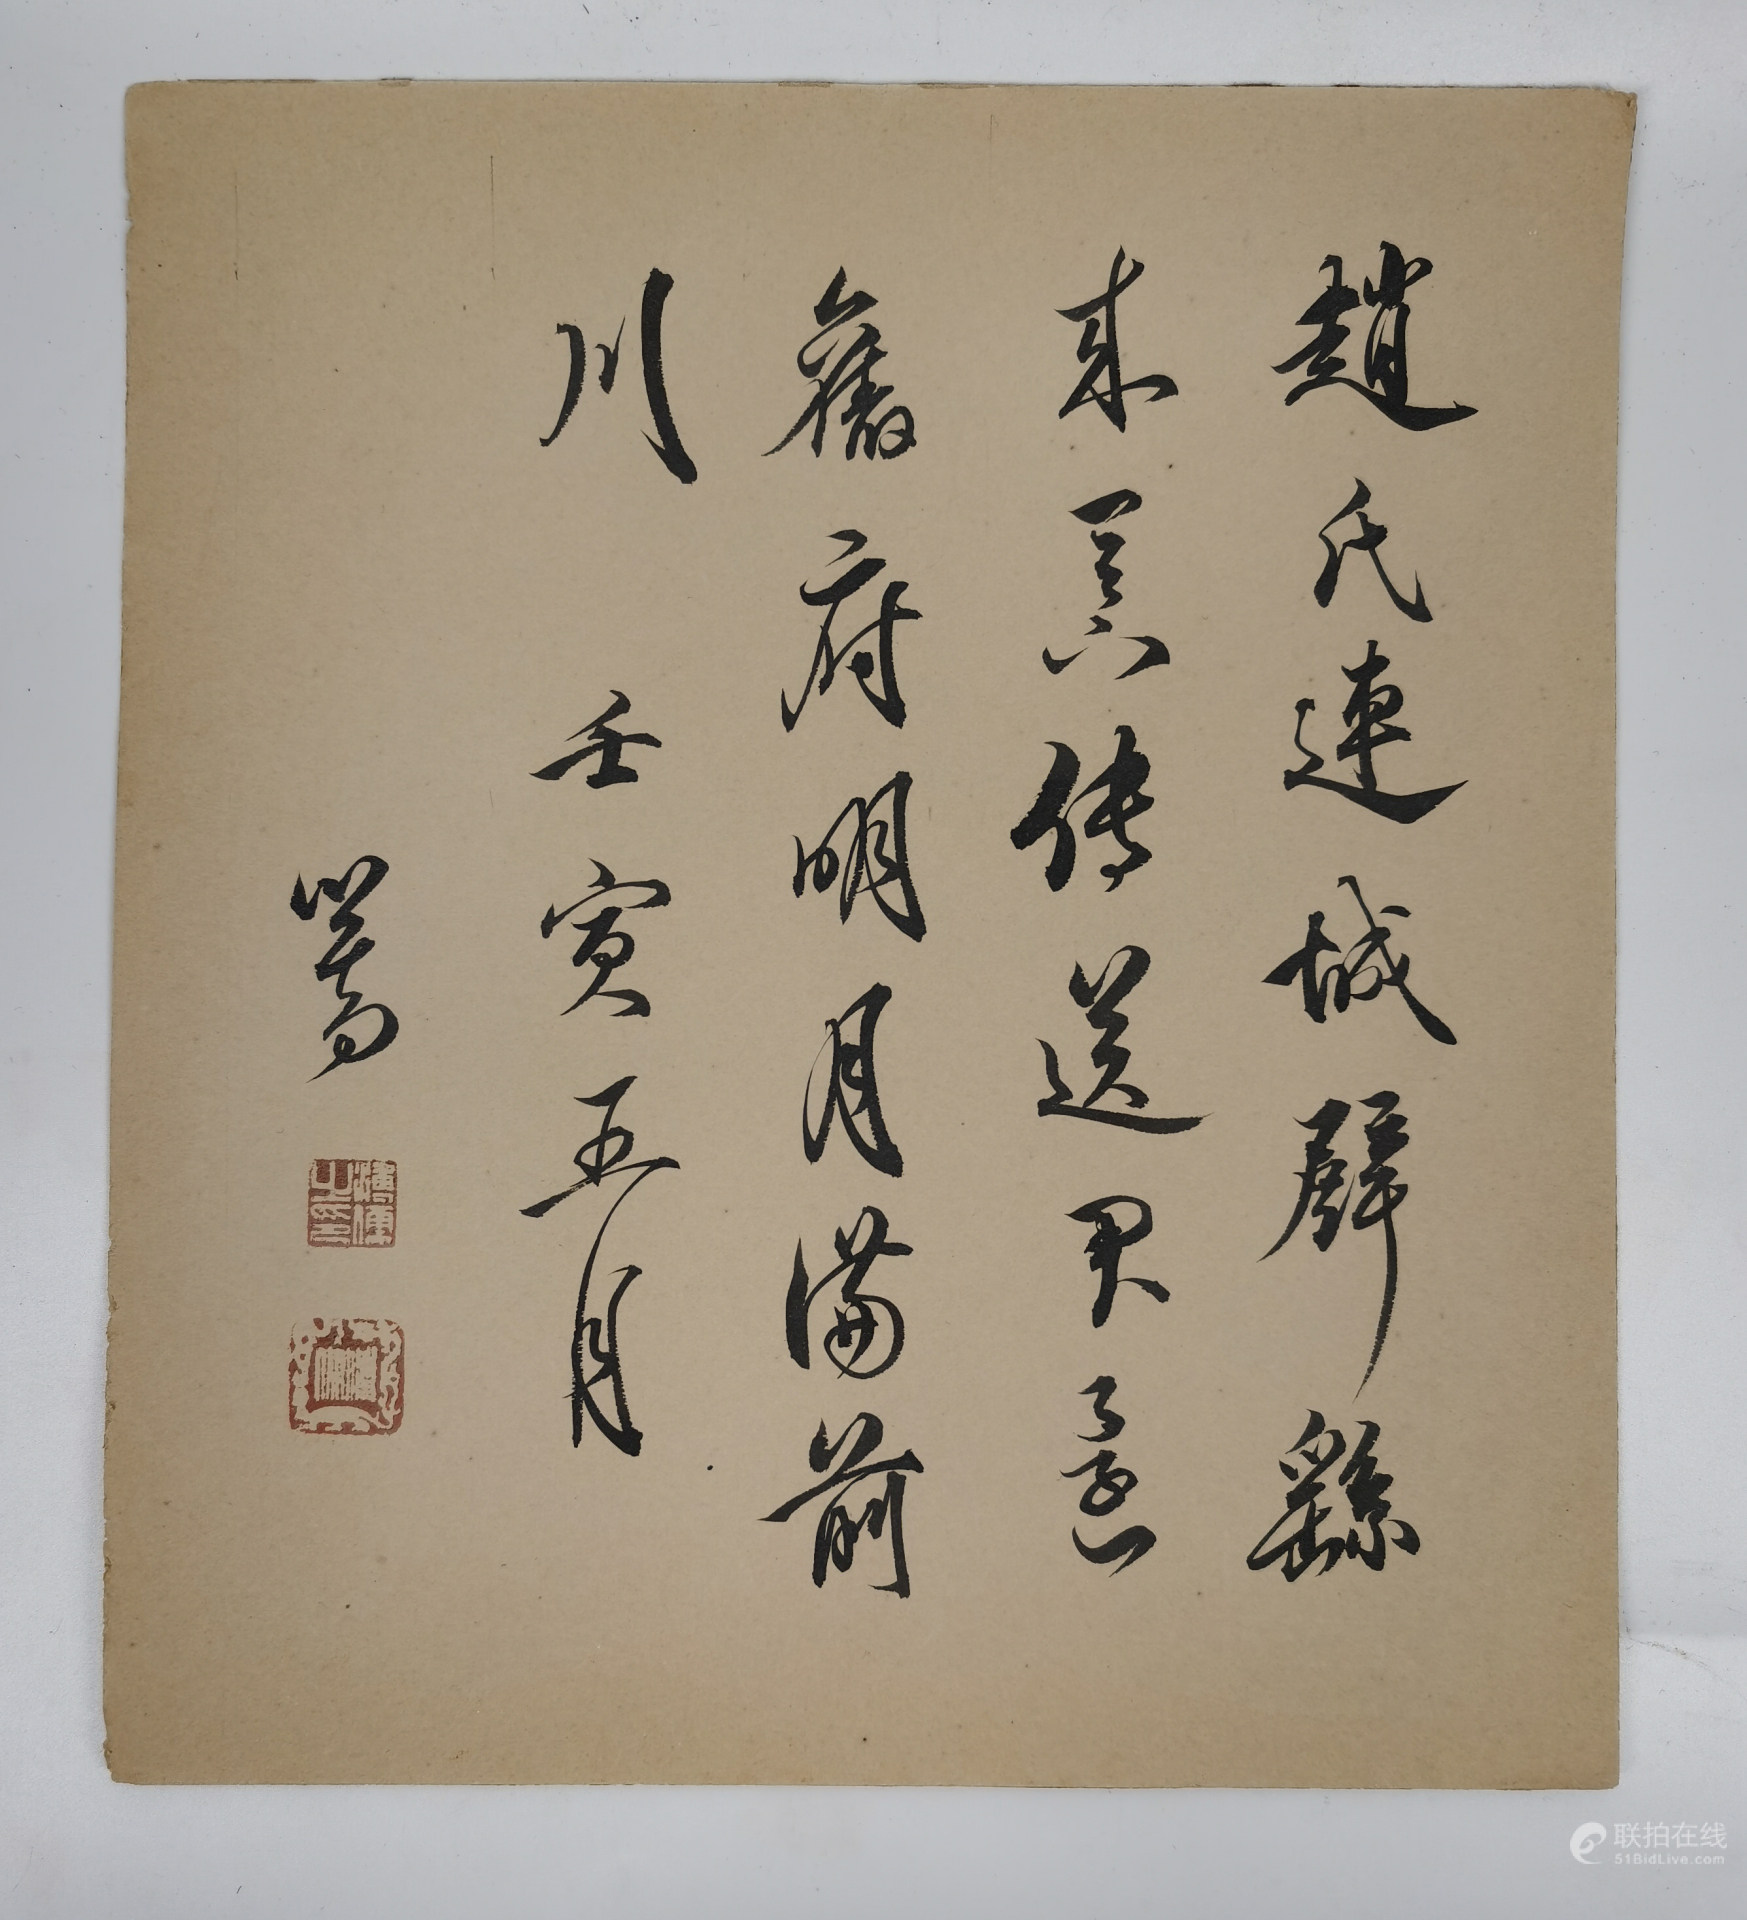 趙氏連城璧繇
來天下傳送君還
舊府明月滿前
川
壬寅五月
心畬
溥儒之印
联拍在线
51BidLive.com